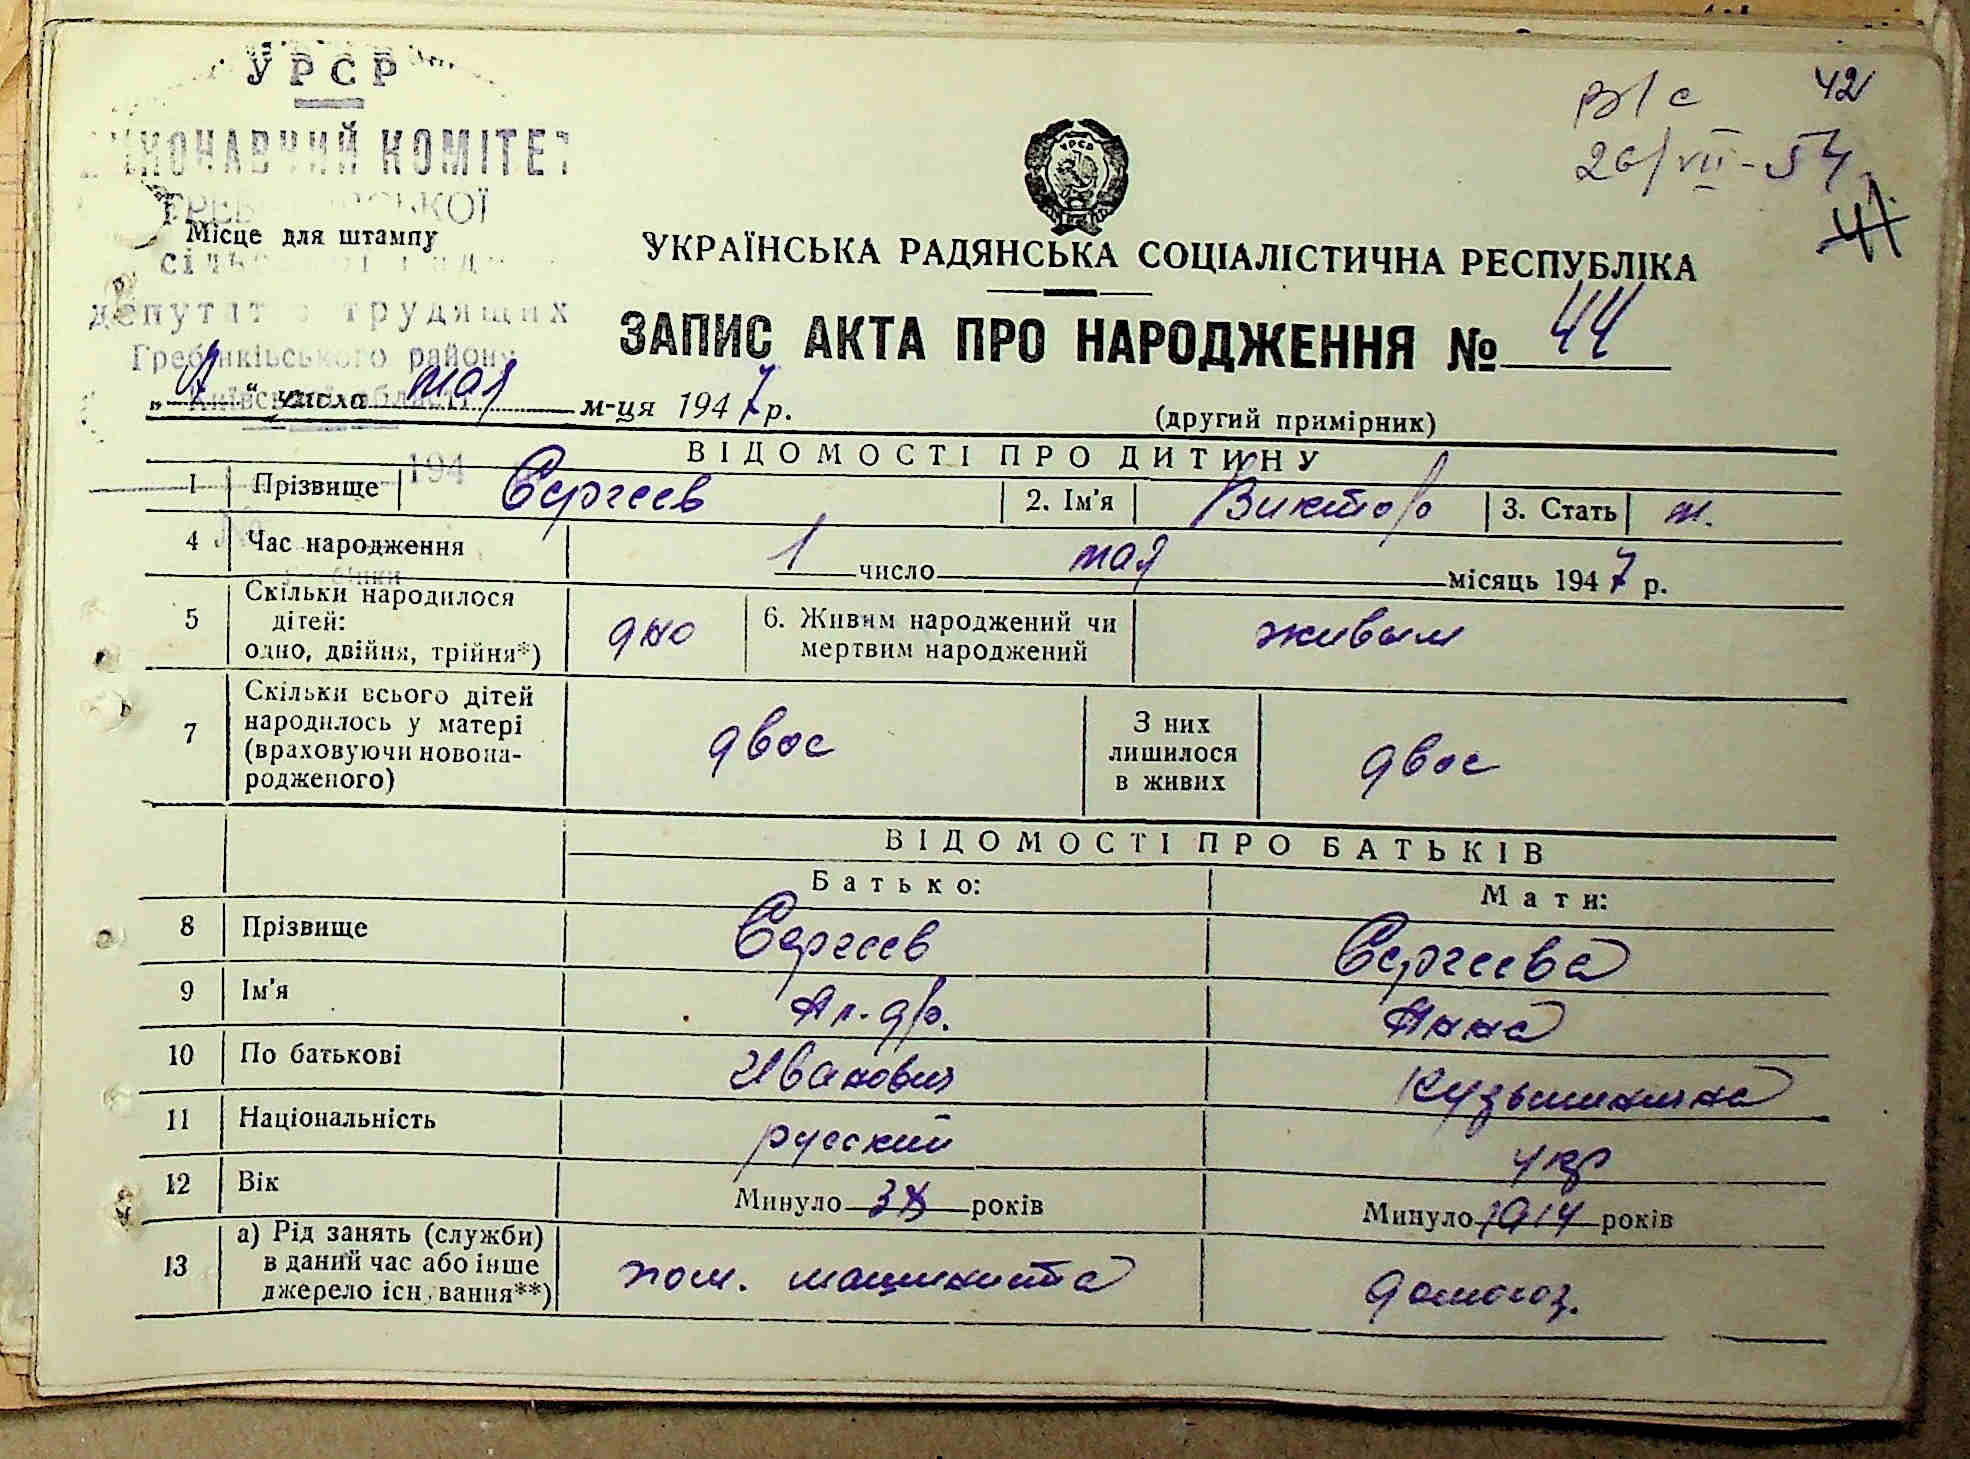 УРСР
ВИКОНАВЧИЙ КОМІТЕТ
Місце для штампу
сільської ради
депутатів трудящих
Гребінківського району
Київської області
194
В/с 42
26/VII-54
41
УРСР
УКРАЇНСЬКА РАДЯНСЬКА СОЦІАЛІСТИЧНА РЕСПУБЛІКА
ЗАПИС АКТА ПРО НАРОДЖЕННЯ № 44
„ “ числа мая м-ця 1947 р.
(другий примірник)
ВІДОМОСТІ ПРО ДИТИНУ
1 Прізвище Сергеев 2. Ім'я Виктор 3. Стать м.
4 Час народження 1 число мая місяць 1947 р.
5 Скільки народилося дітей: одно, двійня, трійня*) дно 6. Живим народжений чи мертвим народжений живым
7 Скільки всього дітей народилось у матері (враховуючи новонародженого) двое З них лишилося в живих двое
ВІДОМОСТІ ПРО БАТЬКІВ
Батько: Мати:
8 Прізвище Сергеев Сергеева
9 Ім'я Ал-др. Анна
10 По батькові Иванович Кузьминична
11 Національність русский укр
12 Вік Минуло років Минуло 1914 років
13 а) Рід занять (служби) в даний час або інше джерело існування**) пом. машиниста домохоз.